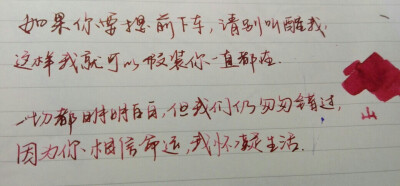 如果你要提前下车，请别叫醒我，
这样我就可以假装你一直都在.
一切都明明白白，但我们仍匆匆错过，
因为你相信命运，我怀疑生活.
山